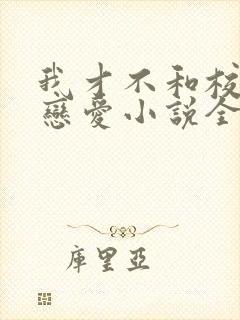 我才不和校
戀愛小說全
庫里亞